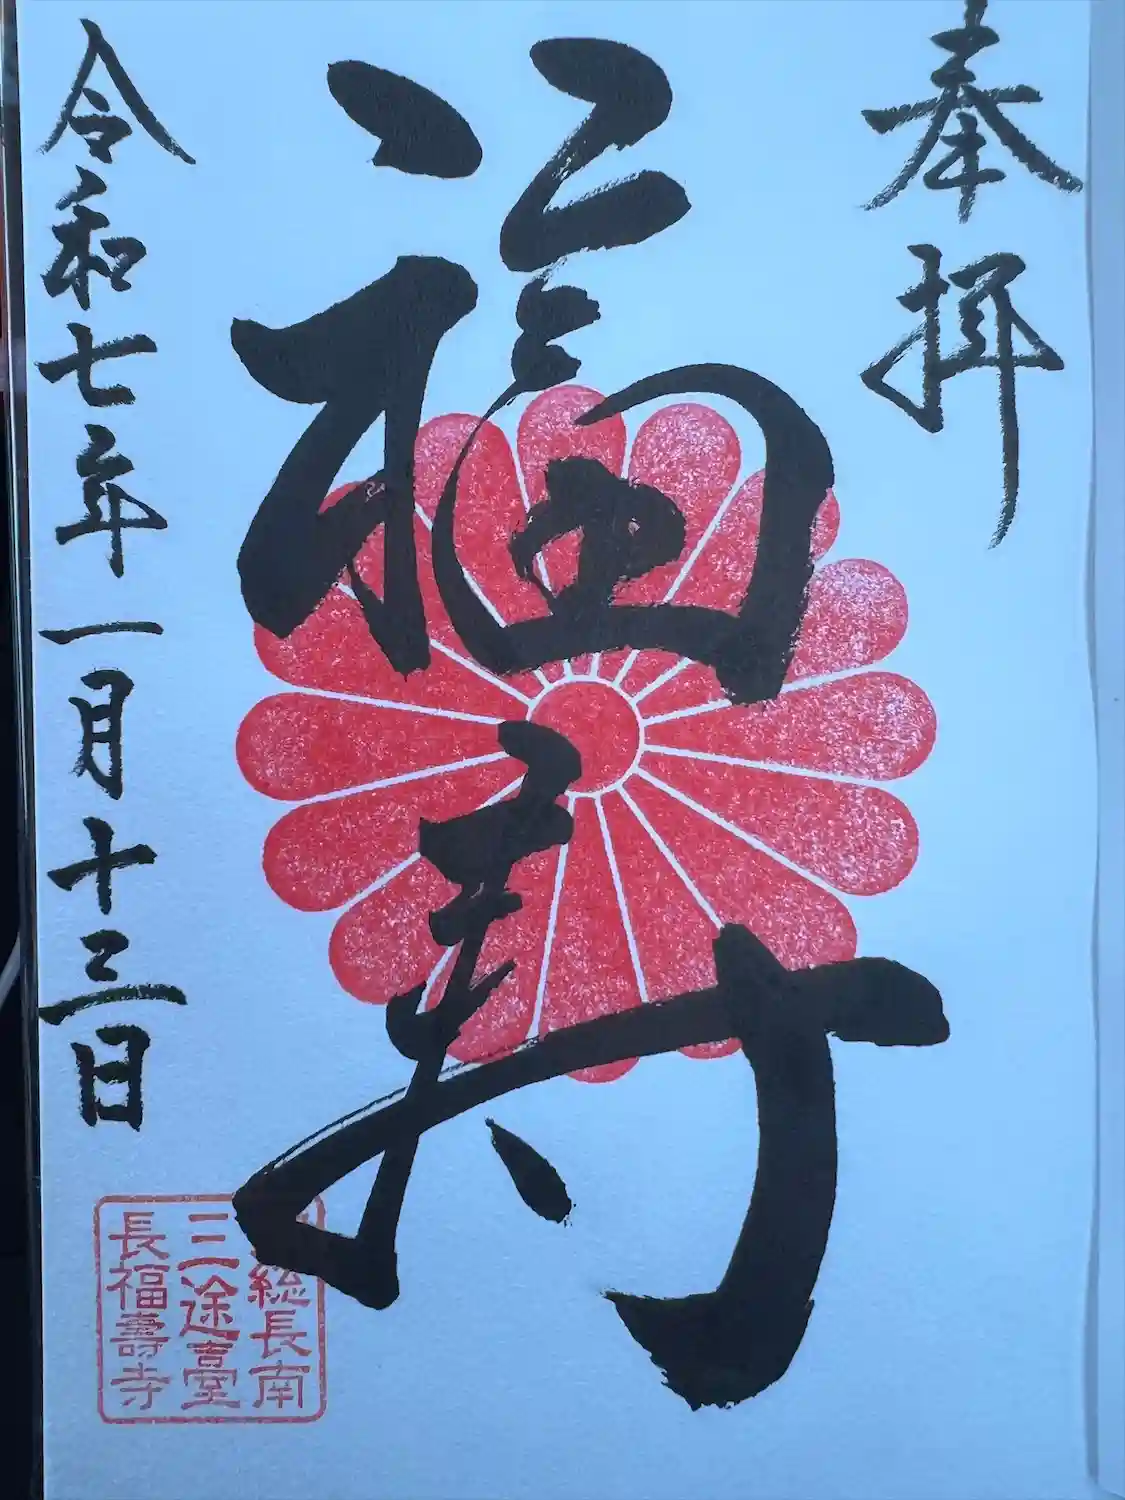 奉拝
福寿
令和七年一月十三日
総長南
三途臺
長福壽寺